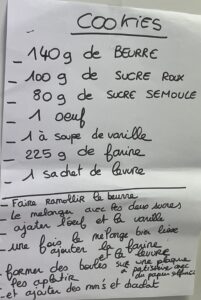 COOKIES
- 140 g de BEURRE
- 100 g de SUCRE ROUX
- 80 g de SUCRE SEMOULE
- 1 oeuf
- 1 à soupe de vanille
- 225 g de farine
- 1 sachet de levure
- Faire ramollir le beurre
- Le mélanger avec les deux sucres
- ajouter l'oeuf et la vanille
- une fois le mélange bien lisse
ajouter la farine
et la levure
- former des boules sur une plaque
à patisserie avec
du papier
- les aplatir
- et ajouter des mm's et chocolat